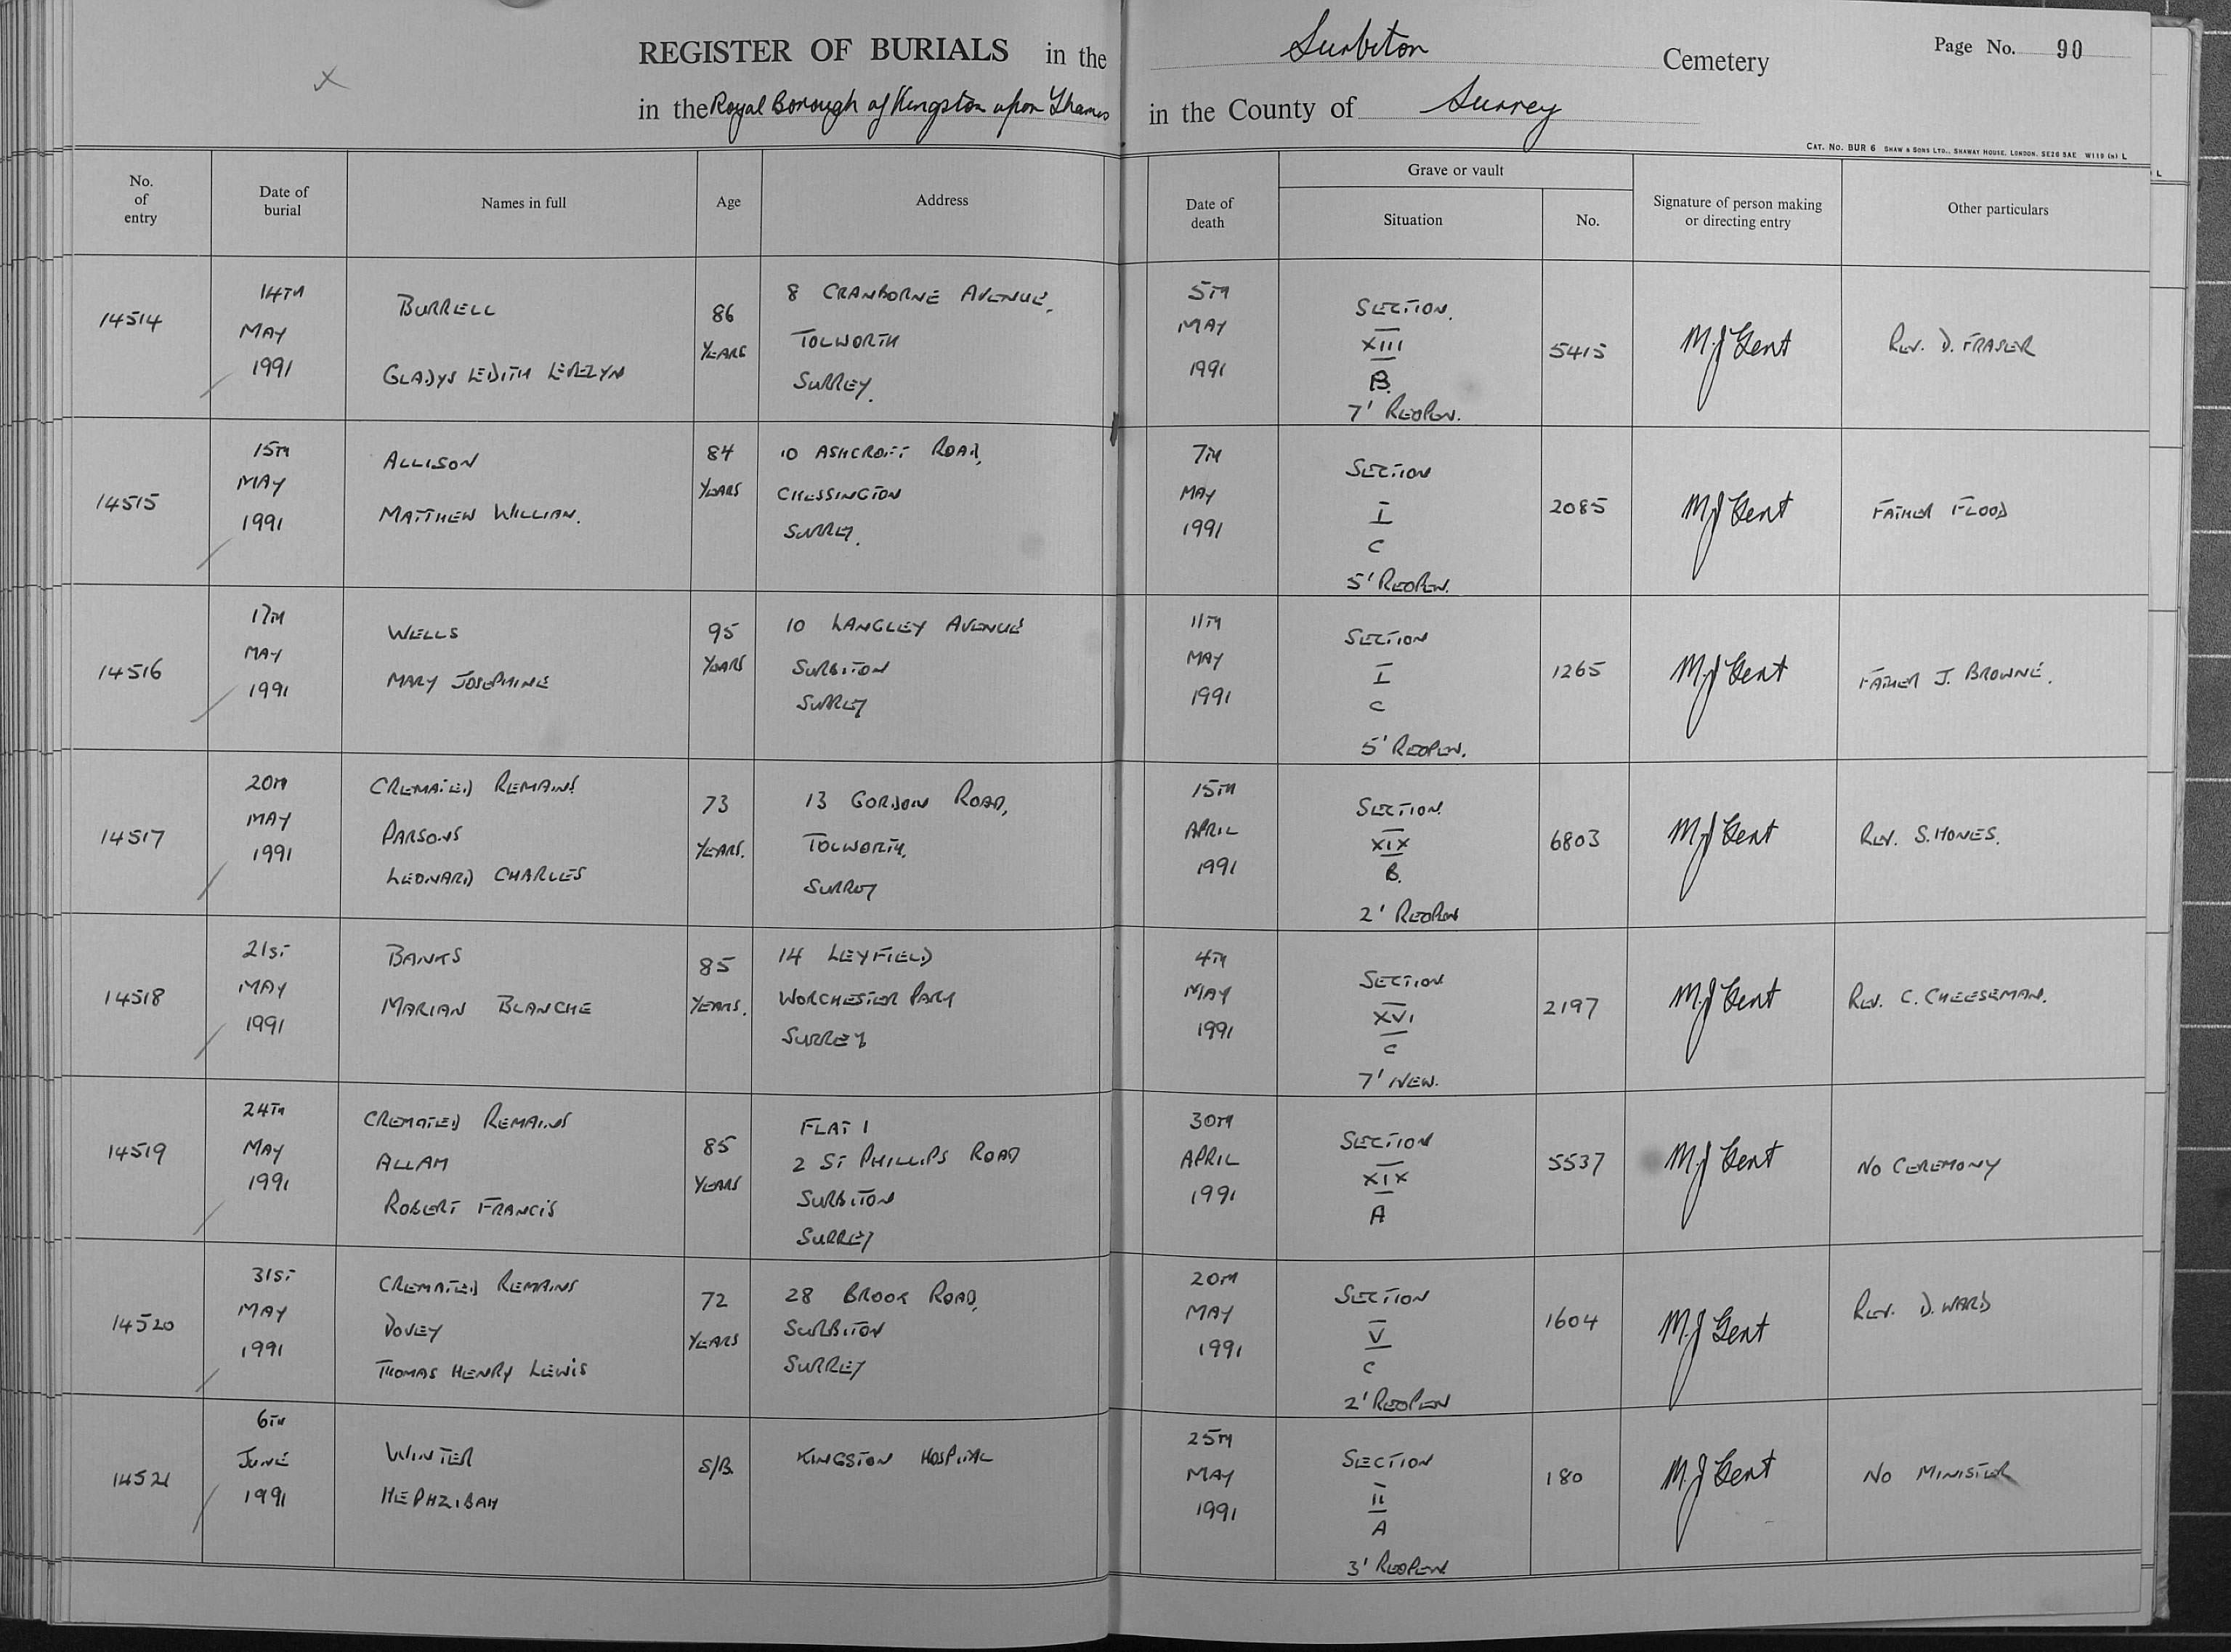 REGISTER OF BURIALS in the Surbiton Cemetery Page No. 90
in the Royal Borough of Kingston upon Thames in the County of Surrey
CAT. No. BUR 6 SHAW & SONS LTD., SHAWAY HOUSE, LONDON, SE26 5AE W119 (N) L
No. of entry
Date of burial
Names in full
Age
Address
Date of death
Grave or vault
Situation
No.
Signature of person making or directing entry
Other particulars
14514
14TH
MAY
1991
BURRELL
GLADYS EDITH EVELYN
86
YEARS
8 CRANBORNE AVENUE,
TOLWORTH
SURREY.
5TH
MAY
1991
SECTION.
XIII
B.
7' REOPEN.
5415
M.J Gent
REV. D. FRASER
14515
15TH
MAY
1991
ALLISON
MATTHEW WILLIAM.
84
YEARS
10 ASHCROFT ROAD,
CHESSINGTON
SURREY.
7TH
MAY
1991
SECTION
I
C
5' REOPEN.
2085
M.J Gent
FATHER FLOOD
14516
17TH
MAY
1991
WELLS
MARY JOSEPHINE
95
YEARS
10 LANGLEY AVENUE
SURBITON
SURREY
11TH
MAY
1991
SECTION
I
C
5' REOPEN.
1265
M.J Gent
FATHER J. BROWNE.
14517
20TH
MAY
1991
CREMATED REMAINS
PARSONS
LEONARD CHARLES
73
YEARS.
13 GORDON ROAD,
TOLWORTH.
SURREY
15TH
APRIL
1991
SECTION.
XIX
B.
2' REOPEN
6803
M.J Gent
REV. S. HONES.
14518
21ST
MAY
1991
BANKS
MARIAN BLANCHE
85
YEARS.
14 LEYFIELD
WORCHESTER PARK
SURREY
4TH
MAY
1991
SECTION
XVI
C
7' NEW.
2197
M.J Gent
REV. C. CHEESEMAN.
14519
24TH
MAY
1991
CREMATED REMAINS
ALLAM
ROBERT FRANCIS
85
YEARS
FLAT 1
2 ST PHILLIPS ROAD
SURBITON
SURREY
30TH
APRIL
1991
SECTION
XIX
A
5537
M.J Gent
NO CEREMONY
14520
31ST
MAY
1991
CREMATED REMAINS
DOVEY
THOMAS HENRY LEWIS
72
YEARS
28 BROOK ROAD,
SURBITON
SURREY
20TH
MAY
1991
SECTION
V
C
2' REOPEN
1604
M.J Gent
REV. D. WARD
14521
6TH
JUNE
1991
WINTER
HEPHZIBAH
S/B.
KINGSTON HOSPITAL
25TH
MAY
1991
SECTION
II
A
3' REOPEN
180
M.J Gent
NO MINISTER